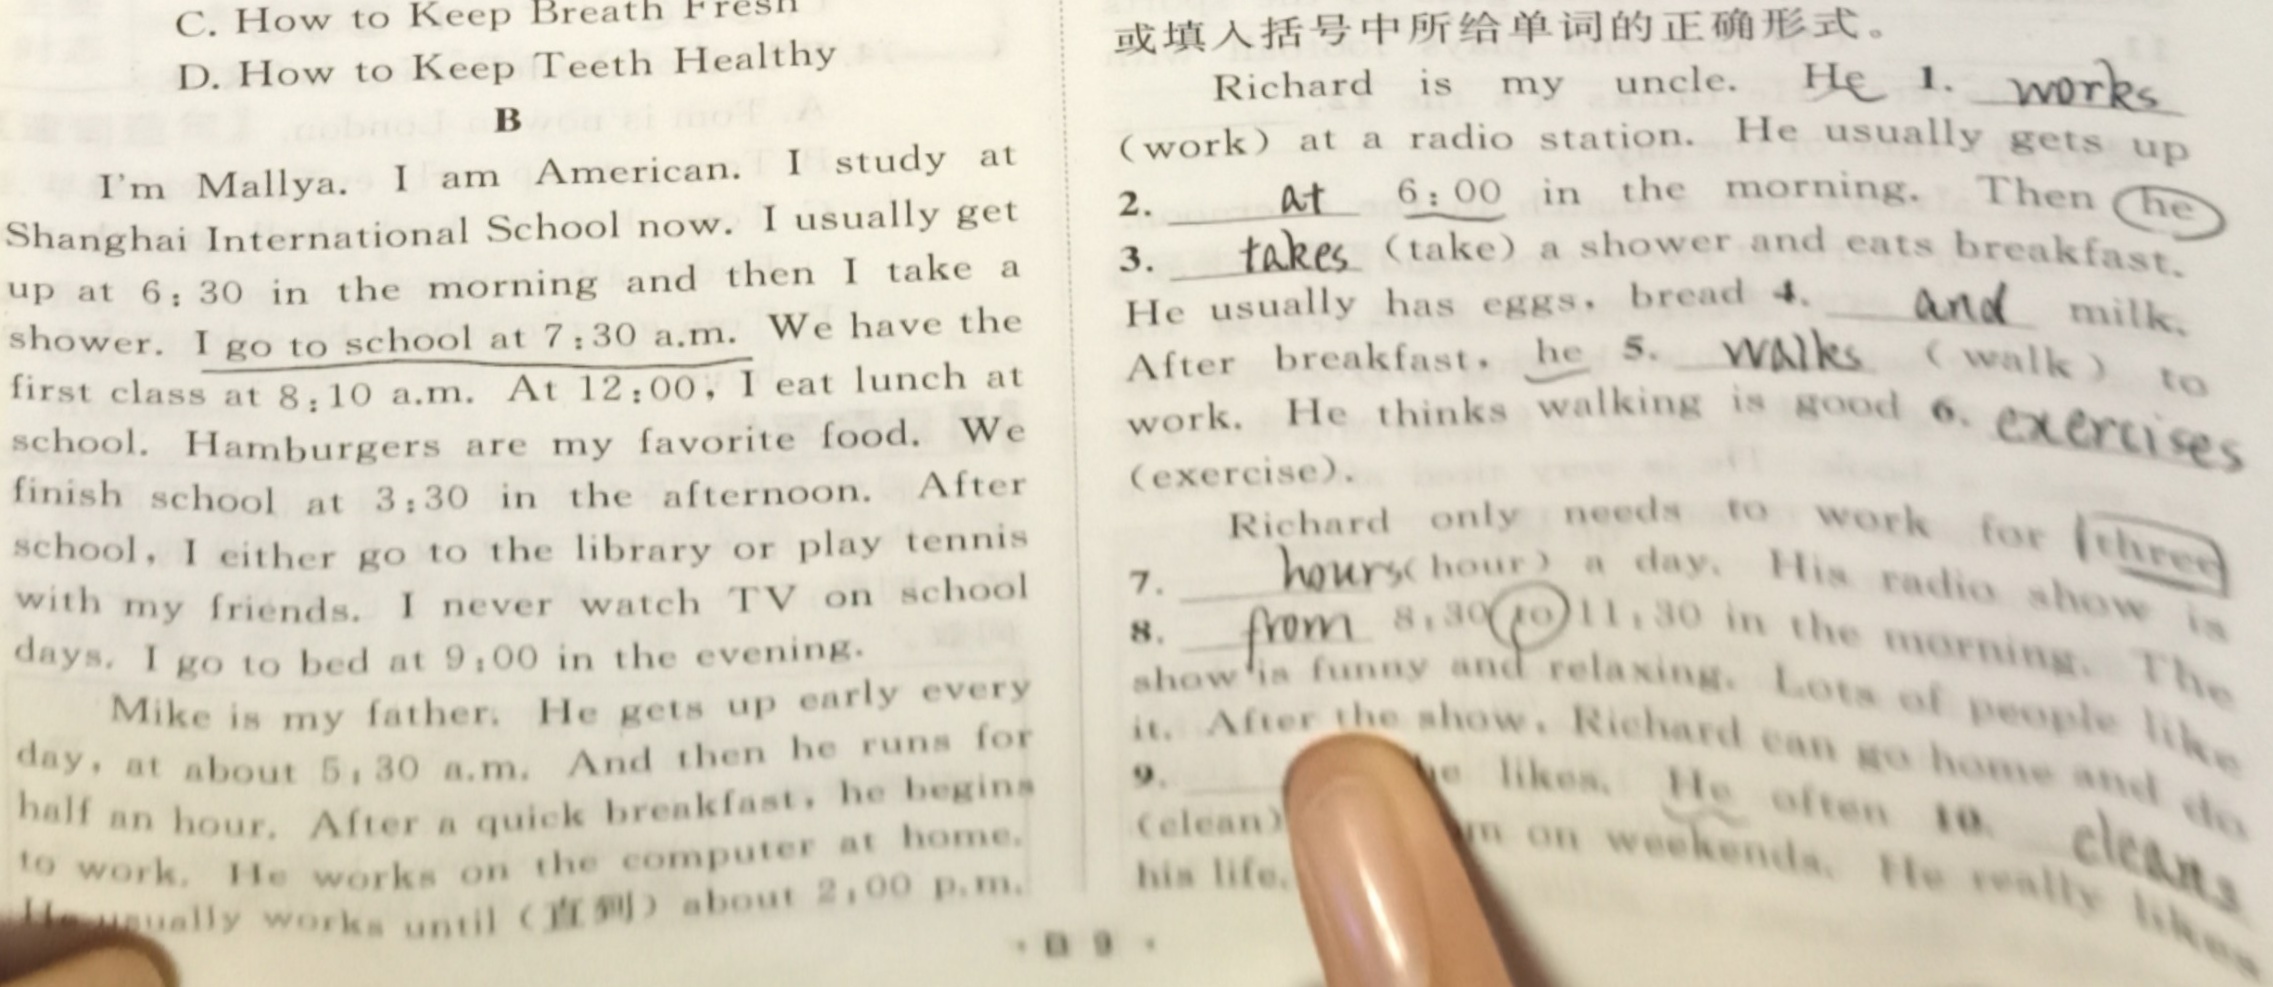 C. How to Keep Breath Fresh
D. How to Keep Teeth Healthy
B
I'm Mallya. I am American. I study at
Shanghai International School now. I usually get
up at 6:30 in the morning and then I take a
shower. I go to school at 7:30 a.m. We have the
first class at 8:10 a.m. At 12:00, I eat lunch at
school. Hamburgers are my favorite food. We
finish school at 3:30 in the afternoon. After
school, I either go to the library or play tennis
with my friends. I never watch TV on school
days. I go to bed at 9:00 in the evening.
Mike is my father. He gets up early every
day, at about 5:30 a.m. And then he runs for
half an hour. After a quick breakfast, he begins
to work. He works on the computer at home.
He usually works until (直到) about 2:00 p.m.
或填入括号中所给单词的正确形式。
Richard is my uncle. He 1. works
(work) at a radio station. He usually gets up
2. at 6:00 in the morning. Then he
3. takes (take) a shower and eats breakfast.
He usually has eggs, bread 4. and milk.
After breakfast, he 5. walks (walk) to
work. He thinks walking is good 6. exercises
(exercise).
Richard only needs to work for three
7. hours (hour) a day. His radio show is
8. from 8:30 to 11:30 in the morning. The
show is funny and relaxing. Lots of people like
it. After the show, Richard can go home and do
9. likes. He often 10. cleans
(clean) on weekends. He really likes
his life.
B 9